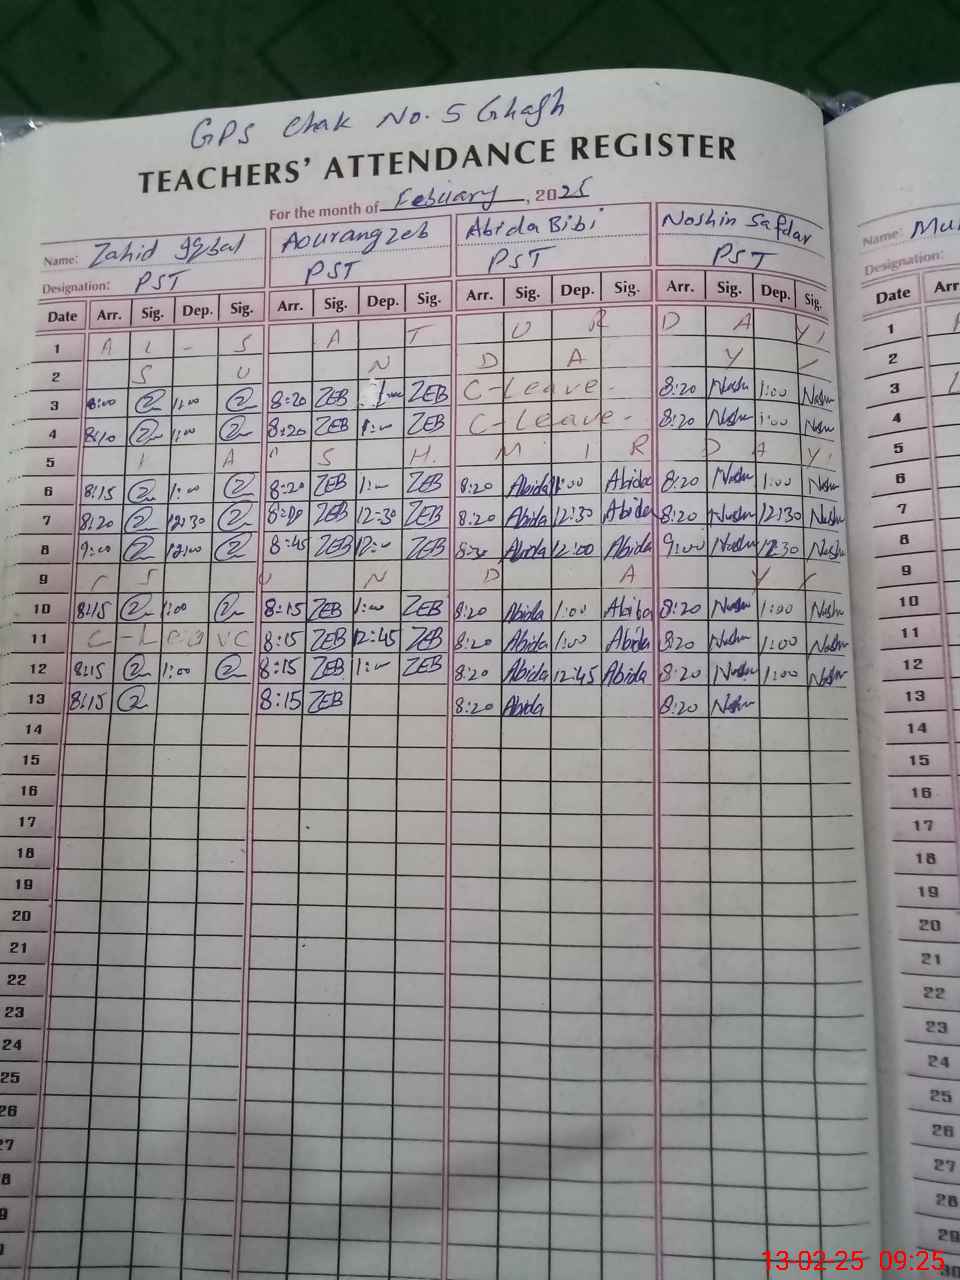 GPS Chak No. 5 Ghagh
TEACHERS' ATTENDANCE REGISTER
For the month of Febuary, 2025
Name: Zahid Iqbal Aourangzeb Abida Bibi Noshin Safdar
Designation: PST PST PST PST
Date Arr. Sig. Dep. Sig. Arr. Sig. Dep. Sig. Arr. Sig. Dep. Sig. Arr. Sig. Dep. Sig.
1 S A T U R D A Y
2 S U N D A Y
3 8:00 1:00 8:20 ZEB 1:00 ZEB C-Leave- 8:20 Nosh 1:00 Nosh
4 8:10 1:00 8:20 ZEB 1:00 ZEB C-Leave- 8:20 Nosh 1:00 Nosh
5 K A S H M I R D A Y
6 8:15 1:00 8:20 ZEB 1:00 ZEB 8:20 Abida 1:00 Abida 8:20 Nosh 1:00 Nosh
7 8:20 12:30 ZEB 12:30 ZEB 8:20 Abida 12:30 Abida 8:20 Nosh 12:30 Nosh
8 9:00 12:00 8:45 ZEB 12:00 ZEB Abida 12:00 Abida 9:00 Nosh 12:30 Nosh
9 S U N D A Y
10 8:15 1:00 8:15 ZEB 1:00 ZEB 8:20 Abida 1:00 Abida 8:20 Nosh 1:00 Nosh
11 C-Leave 8:15 ZEB 12:45 ZEB 8:20 Abida 1:00 Abida 8:20 Nosh 1:00 Nosh
12 8:15 1:00 8:15 ZEB 1:00 ZEB 8:20 Abida 12:45 Abida 8:20 Nosh 1:00 Nosh
13 8:15 8:15 ZEB 8:20 Abida 8:20 Nosh
14
15
16
17
18
19
20
21
22
23
24
25
26
27
Name: Mu
Designation:
Date Arr
1
2
3
4
5
6
7
8
9
10
11
12
13
14
15
16
17
18
19
20
21
22
23
24
25
26
27
28
29
30
13-02-25 09:25